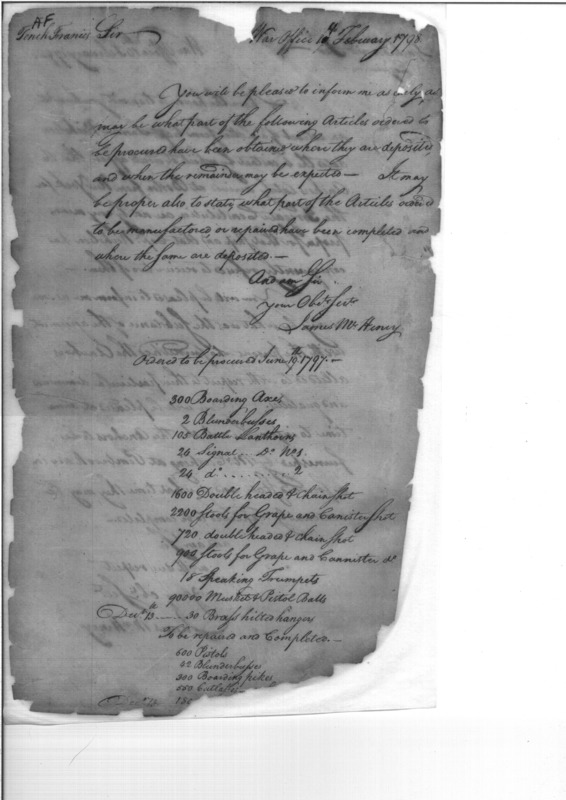 AF
Tench Francis Sir War Office 14th February 1798
You will be pleased to inform me as early as
may be what part of the following Articles ordered to
be procured have been obtained where they are deposited,
and when the remainder may be expected — It may
be proper also to state what part of the Articles ordered
to be manufactored or repaired have been completed and
where the same are deposited. —
And am Sir
your Obt. Servt.
James McHenry
Ordered to be procured June 19th 1797. —
300 Boarding Axes
2 Blunderbusses
105 Battle Lanthorns
24 Signal .. Do. No 1.
24 do. ........ 2
1600 Double headed & chain shot
2200 Stools for Grape and Canister Shot
720 double headed & chain shot
900 Stools for Grape and Cannister do
18 Speaking Trumpets
90000 Musket & Pistol Balls
Decr. 13th ..... 30 Brass hilted hangers
To be repaired and Completed. —
600 Pistols
42 Blunderbusses
300 Boarding pikes
550 Cutlasses